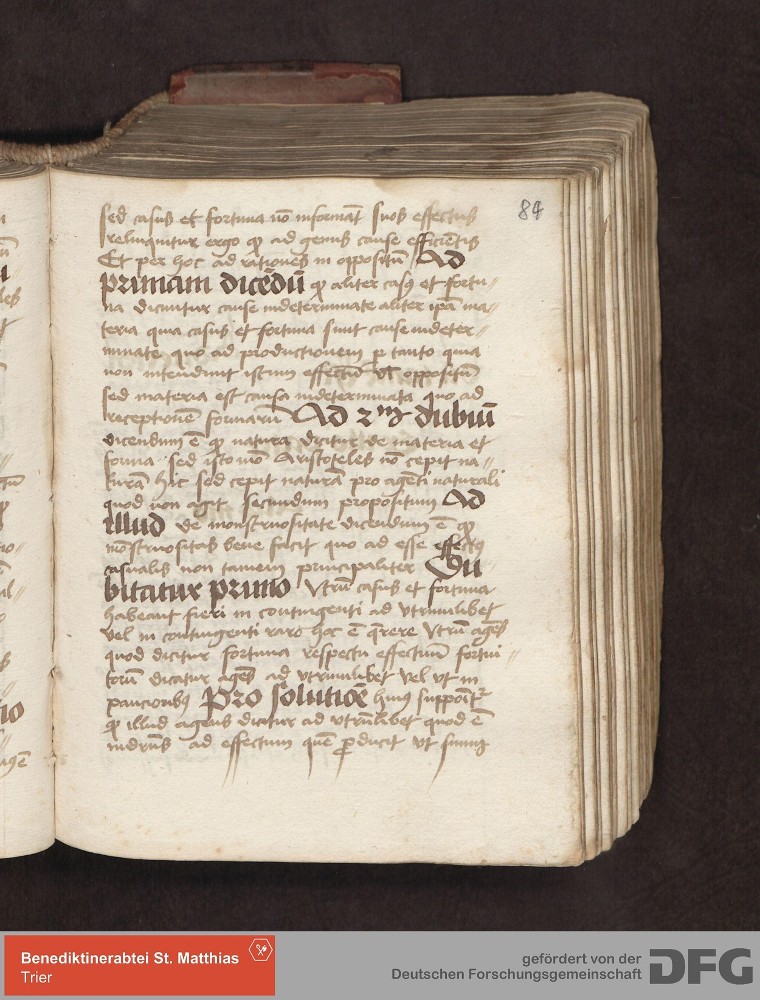 84
sed casus et fortuna nō informāt suos effectus
relinquitur ergo qͻ ad genus cause efficiētis
Et per hoc ad rationes in oppositū Ad
primam dicēdū qͻ aliter casꝰ et fortu-
na dicuntur cause indeterminate aliter ipā ma-
teria quia casus et fortuna sunt cause indeter-
minate quo ad productionem p tanto quia
non intendunt istum effectū vl oppositū
sed materia est causa indeterminata quo ad
receptionē formarū Ad 2ᵐ dubiū
dicendum ē qͻ natura dicitur de materia et
forma sed isto mō Aristoteles nō cepit na-
turā hic sed cepit naturā pro agēti naturali
quod non agit secundum propositum Ad
illud de monstruositate dicendum ē qͻ
mōstruositas bene facit quo ad esse effectꝰ
casualis non tamen principaliter Du
bitatur primo Vtrū casus et fortuna
habeant fieri in contingenti ad vtrumlibet
vel in contingenti raro hoc ē q̄rere vtrū agēs
quod dicitur fortuna respectu effectuum fortui-
torum dicatur agēs ad vtrumlibet vel vt in
paucioribꝰ Pro solutiōe huiꝰ suppōit̄
qͻ illud agens dicitur ad vtrūlibet quod ē
indr̄ns ad effectum quē ꝓducit vt sumꝰ
Benediktinerabtei St. Matthias
Trier
gefördert von der
Deutschen Forschungsgemeinschaft
DFG